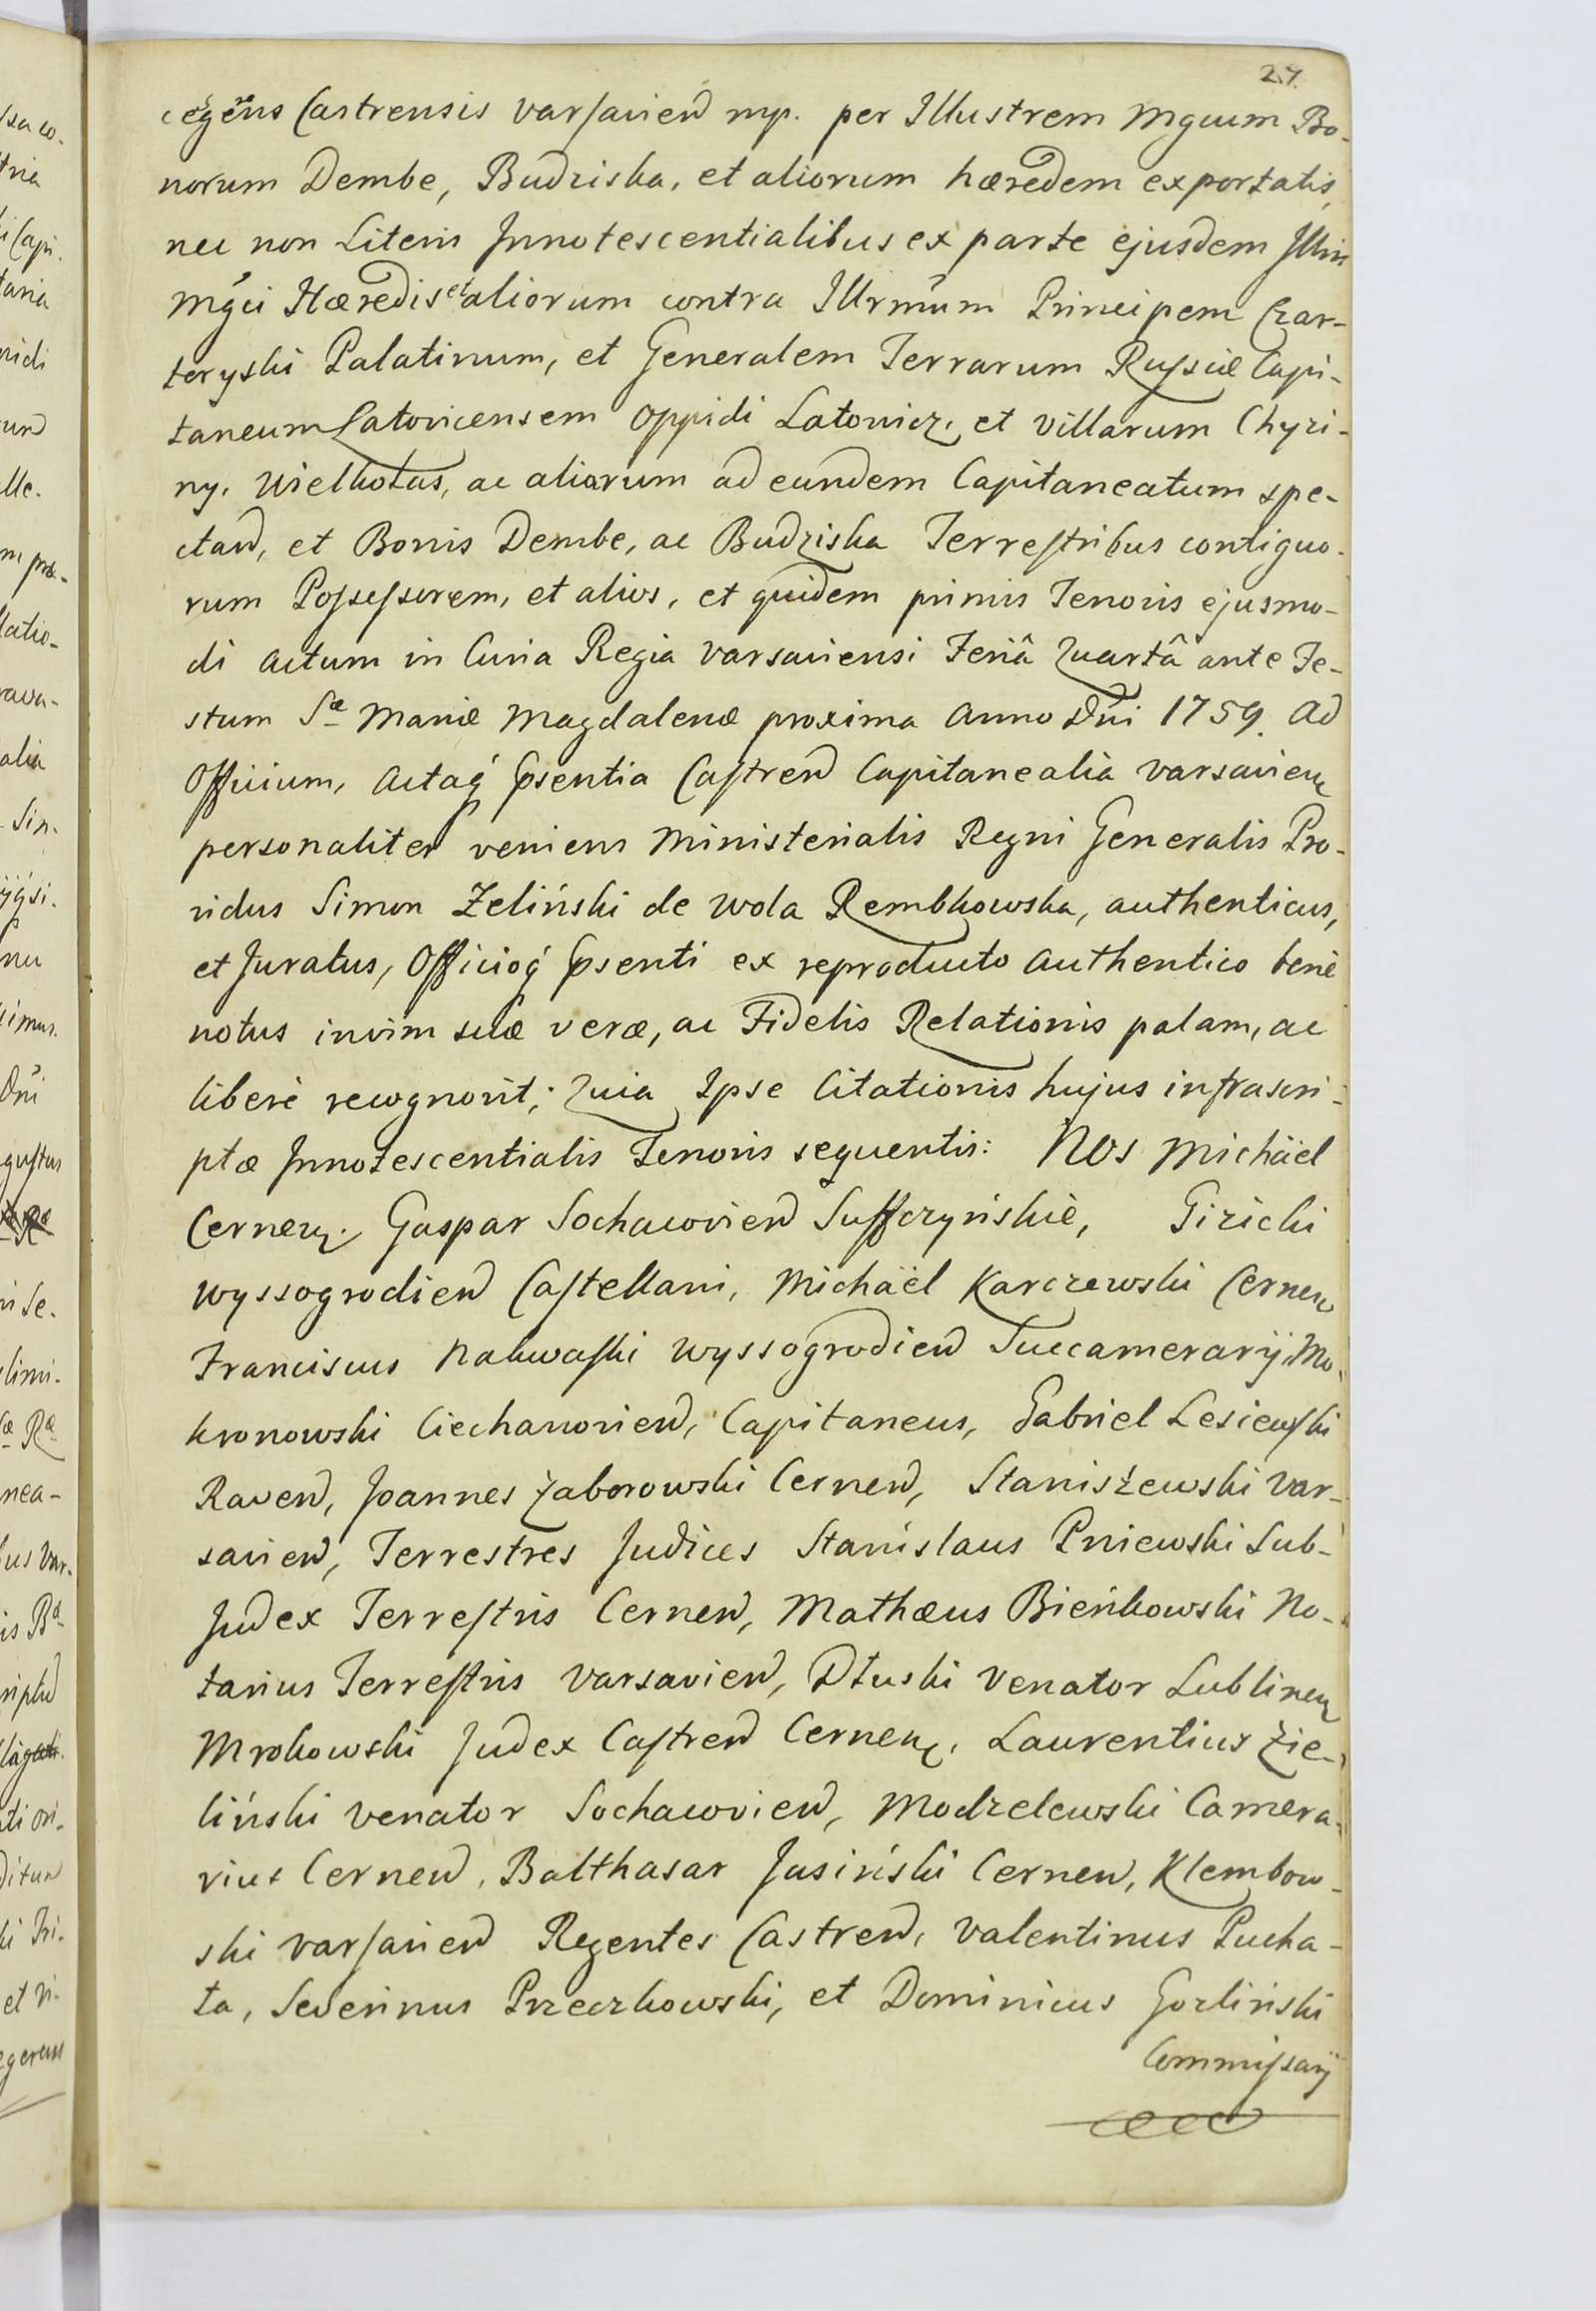 27.
Castrensis Varsavien mp. per Illustrem Mgcum Bo-
norum Dembe, Budziska, et aliorum hæredem exportatis,
nec non Literis Innotescentialibus ex parte ejusdem Illris
Mgci Hæredis et aliorum contra Illrmum Principem Czar-
toryski Palatinum, et Generalem Terrarum Russiæ Capi-
taneum Latovicensem Oppidi Latowicz, et Villarum Chyzi-
ny, Wielkolas, ac aliorum ad eundem Capitaneatum spe-
ctan, et Bonis Dembe, ac Budziska Terrestribus contiguo-
rum Possessorem, et alios, et quidem primis Tenoris ejusmo-
di Actum in Curia Regia Varsaviensi Feriâ Quartâ ante Fe-
stum Sæ Mariæ Magdalenæ proxima Anno Dni 1759. Ad
Officium, Actaq psentia Castren Capitanealia Varsavien
personaliter veniens Ministerialis Regni Generalis Pro-
vidus Simon Zeliński de Wola Rembkowska, authenticus,
et Juratus, Officioq psenti ex reproducto Authentico benè
notus invim suæ veræ, ac Fidelis Relationis palam, ac
liberè recognovit; Quia Ipse Citationis hujus infrascri-
ptæ Innotescentialis Tenoris sequentis: Nos Michäel
Cernen. Gaspar Sochacovien Suffczyńskie, Gizicki
Wyssogrodien Castellani, Michaël Karczewski Cernen
Franciscus Nakwaski Wyssogrodien Succamerarij, Mo-
kronowski Ciechanovien, Capitaneus, Gabriel Lesiewski
Raven, Joannes Zaborowski Cernen, Staniszewski Var-
savien, Terrestres Judices Stanislaus Pniewski Sub-
Judex Terrestris Cernen, Mathæus Bieńkowski No-
tarius Terrestris Varsavien, Dłuski Venator Lublinen
Mrokowski Judex Castren Cernen, Laurentius Zie-
liński Venator Sochacovien, Modzelewski Camera-
rius Cernen, Balthasar Jasiński Cernen, Klembow-
ski Varsavien Regentes Castren, Valentinus Pucha-
ła, Severinus Przeczkowski, et Dominicus Gozliński
Commissarij